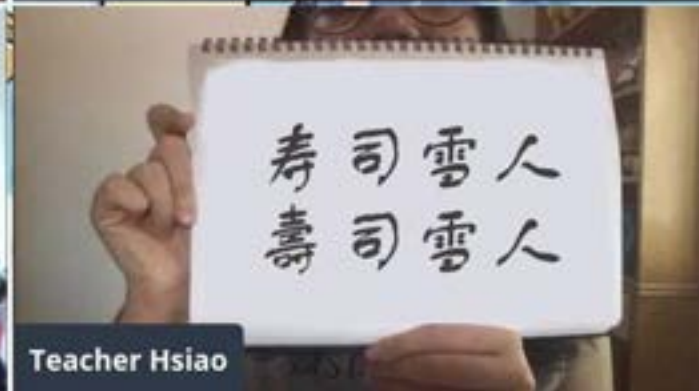 寿司雪人
壽司雪人
Teacher Hsiao